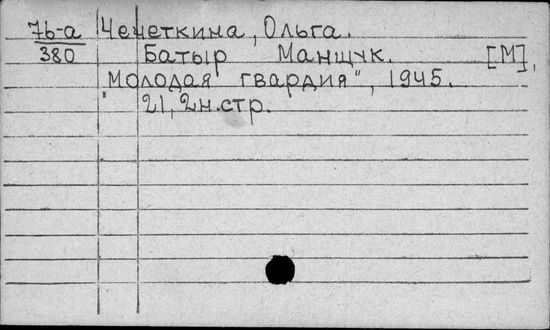 76-а Чечеткина, Ольга.
380 Батыр Манщук. [М],
"Молодая гвардия", 1945.
21, 2н.стр.